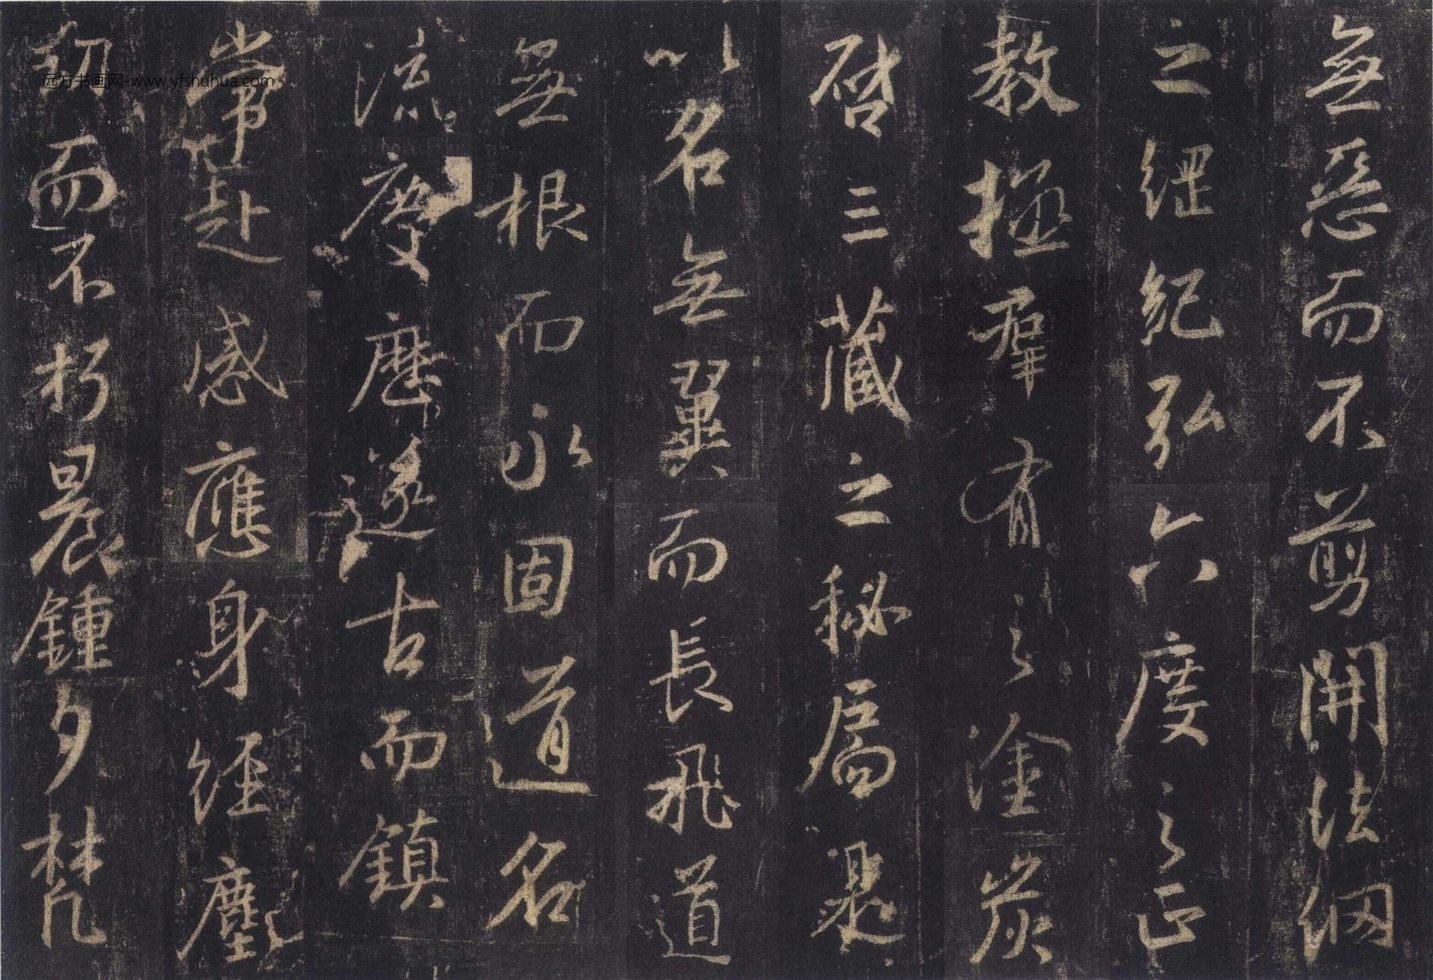 無惡而不剪開法網
之綱紀弘六度之正
教拯羣有之塗炭
啓三藏之秘扃是
以名無翼而長飛道
無根而永固道名
流慶歷遂古而鎮
常赴感應身經塵
劫而不朽晨鍾夕梵
远方书画网-www.yfshuhua.com